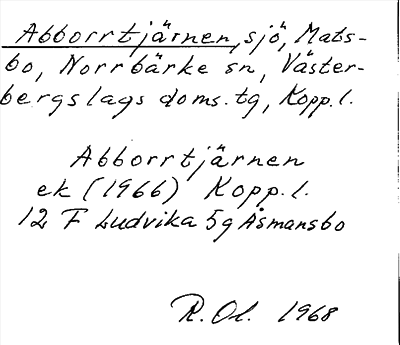 Abborrtjärnen, sjö, Mats-
bo, Norrbärke sn, Väster-
bergslags doms. tg, Kopp. l.
Abborrtjärnen
ek (1966) Kopp. l.
12 F Ludvika 5g Åsmansbo
R. Ol. 1968